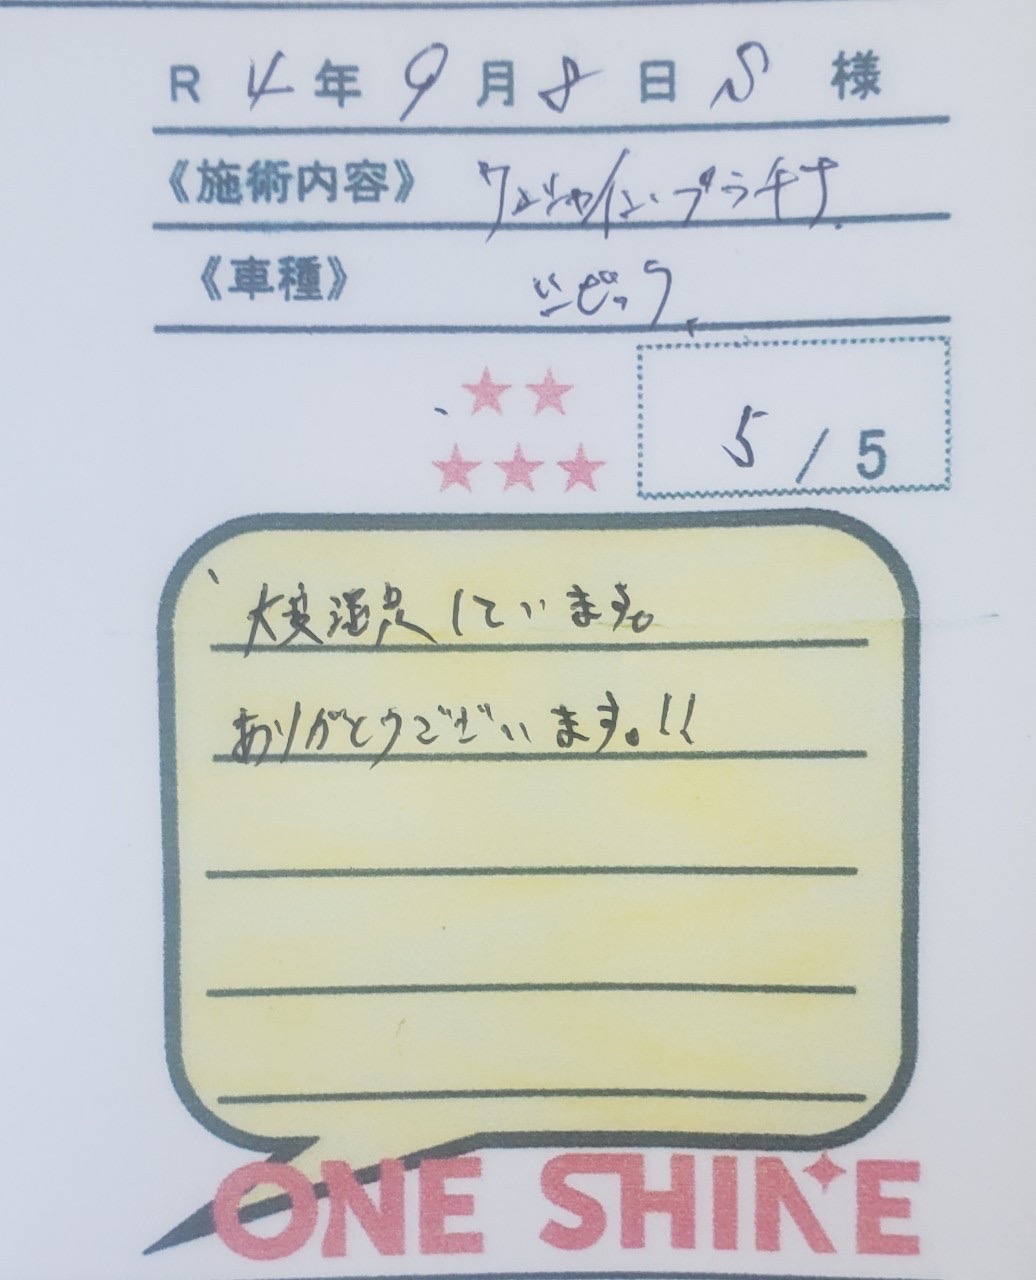 R 4 年 9 月 8 日 S 様
《施術内容》 ワンシャイン・プラチナ
《車種》 シビック
5 / 5
大変満足しています。
ありがとうございます。!!
ONE SHINE